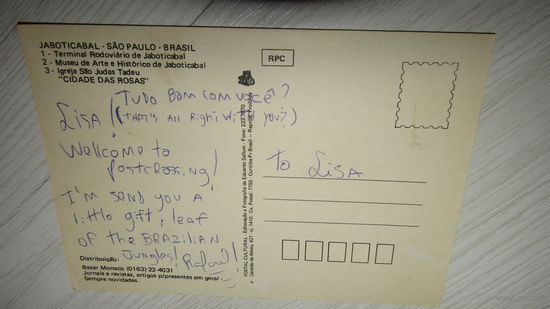 JABOTICABAL - SÃO PAULO - BRASIL
1 - Terminal Rodoviário de Jaboticabal
2 - Museu de Arte e Histórico de Jaboticabal
3 - Igreja São Judas Tadeu
"CIDADE DAS ROSAS"
RPC
TUDO BOM COM VOCÊ?
LISA! (THAT'S All Right With you?)
Wellcome to
Postcrossing!
I'm send you A
little gift, leaf
of the BRAZILIAN
Jungles! Rafael!
To LISA
Distribuição:
Bazar Monaco (0163) 22-4031
Jornais e revistas, artigos p/presentes em geral
Sempre novidades.
POSTAL CULTURAL - Editoração e Fotografia de Eduardo